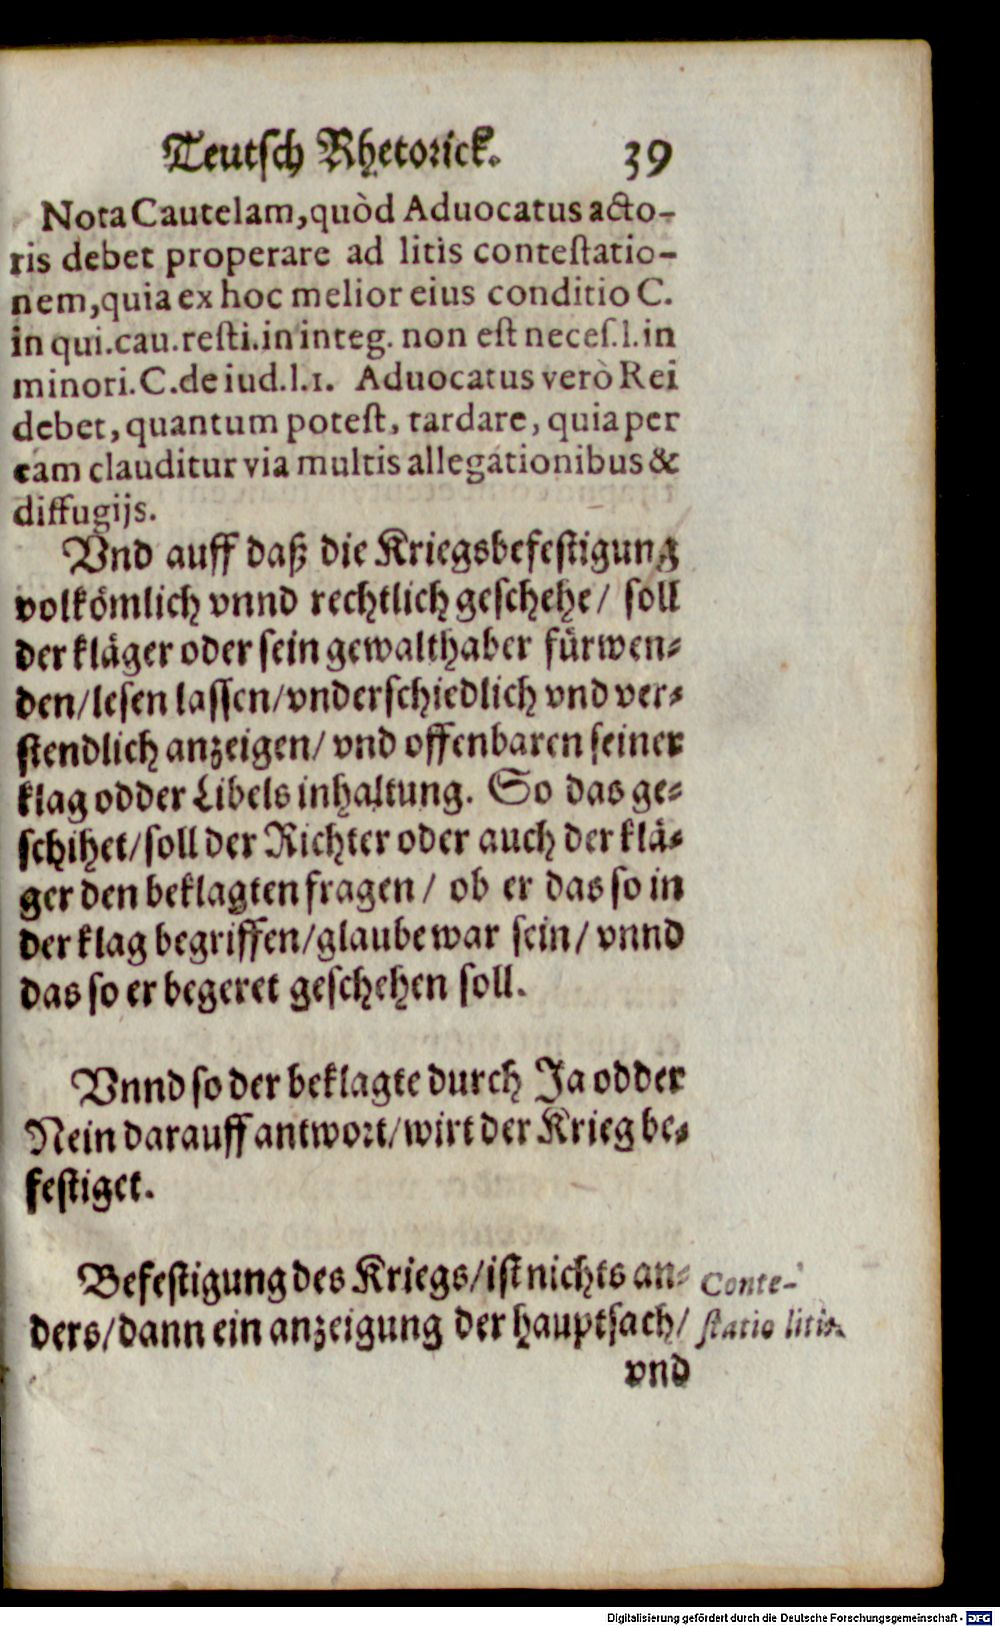 Teutsch Rhetorick. 39
Nota Cautelam, quòd Aduocatus acto-
ris debet properare ad litis contestatio-
nem, quia ex hoc melior eius conditio C.
in qui. cau. resti. in integ. non est neces. l. in
minori. C. de iud. l. 1. Aduocatus verò Rei
debet, quantum potest, tardare, quia per
eam clauditur via multis allegationibus &
diffugijs.
Vnd auff daß die Kriegsbefestigung
volkömlich vnnd rechtlich geschehe/ soll
der kläger oder sein gewalthaber fürwen-
den/ lesen lassen/ vnderschiedlich vnd ver-
stendlich anzeigen/ vnd offenbaren seiner
klag odder Libels inhaltung. So das ge-
schihet/ soll der Richter oder auch der klä-
ger den beklagten fragen/ ob er das so in
der klag begriffen/ glaube war sein/ vnnd
das so er begeret geschehen soll.
Vnnd so der beklagte durch Ja odder
Nein darauff antwort/ wirt der Krieg be-
festiget.
Befestigung des Kriegs/ ist nichts an-
ders/ dann ein anzeigung der hauptsach/
Conte-
statio litis.
vnd
Digitalisierung gefördert durch die Deutsche Forschungsgemeinschaft - DFG